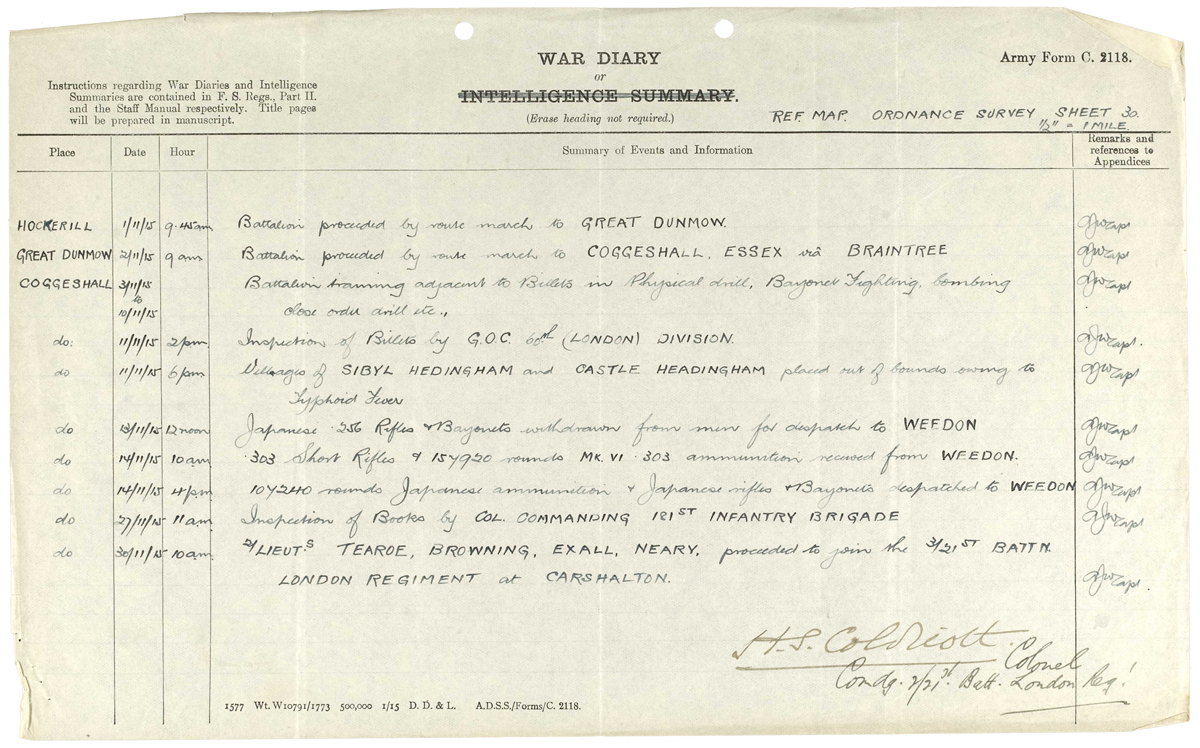 WAR DIARY
or
INTELLIGENCE SUMMARY.
(Erase heading not required.)
Army Form C. 2118.
Instructions regarding War Diaries and Intelligence
Summaries are contained in F. S. Regs., Part II.
and the Staff Manual respectively. Title pages
will be prepared in manuscript.
REF. MAP. ORDNANCE SURVEY SHEET 30.
1/2" = 1 MILE.
Place Date Hour Summary of Events and Information Remarks and
references to
Appendices
HOCKERILL 1/11/15 9.45am Battalion proceeded by route march to GREAT DUNMOW. Capt
GREAT DUNMOW 2/11/15 9 am Battalion proceeded by route march to COGGESHALL, ESSEX via BRAINTREE Capt
COGGESHALL 3/11/15 Battalion training adjacent to Billets in Physical drill, Bayonet Fighting, bombing Capt
to
10/11/15 close order drill etc.,
do: 11/11/15 2pm Inspection of Billets by G.O.C. 60th (LONDON) DIVISION. Capt.
do 11/11/15 6pm Villages of SIBYL HEDINGHAM and CASTLE HEADINGHAM placed out of bounds owing to Capt
Typhoid Fever
do 13/11/15 12 noon Japanese .256 Rifles & Bayonets withdrawn from men for despatch to WEEDON Capt
do 14/11/15 10 am .303 Short Rifles & 157920 rounds MK. VI .303 ammunition received from WEEDON. Capt
do 14/11/15 4pm 107240 rounds Japanese ammunition & Japanese rifles & Bayonets despatched to WEEDON Capt
do 27/11/15 11am Inspection of Books by COL. COMMANDING 181ST INFANTRY BRIGADE Capt
do 30/11/15 10am 2/LIEUT.S TEAROE, BROWNING, EXALL, NEARY, proceeded to join the 3/21ST BATTN.
LONDON REGIMENT at CARSHALTON. Capt.
H.S. Coldicott. Colonel
Comdg. 2/21st Batt. London Reg!
1577 Wt. W10791/1773 500,000 1/15 D. D. & L. A.D.S.S./Forms/C. 2118.